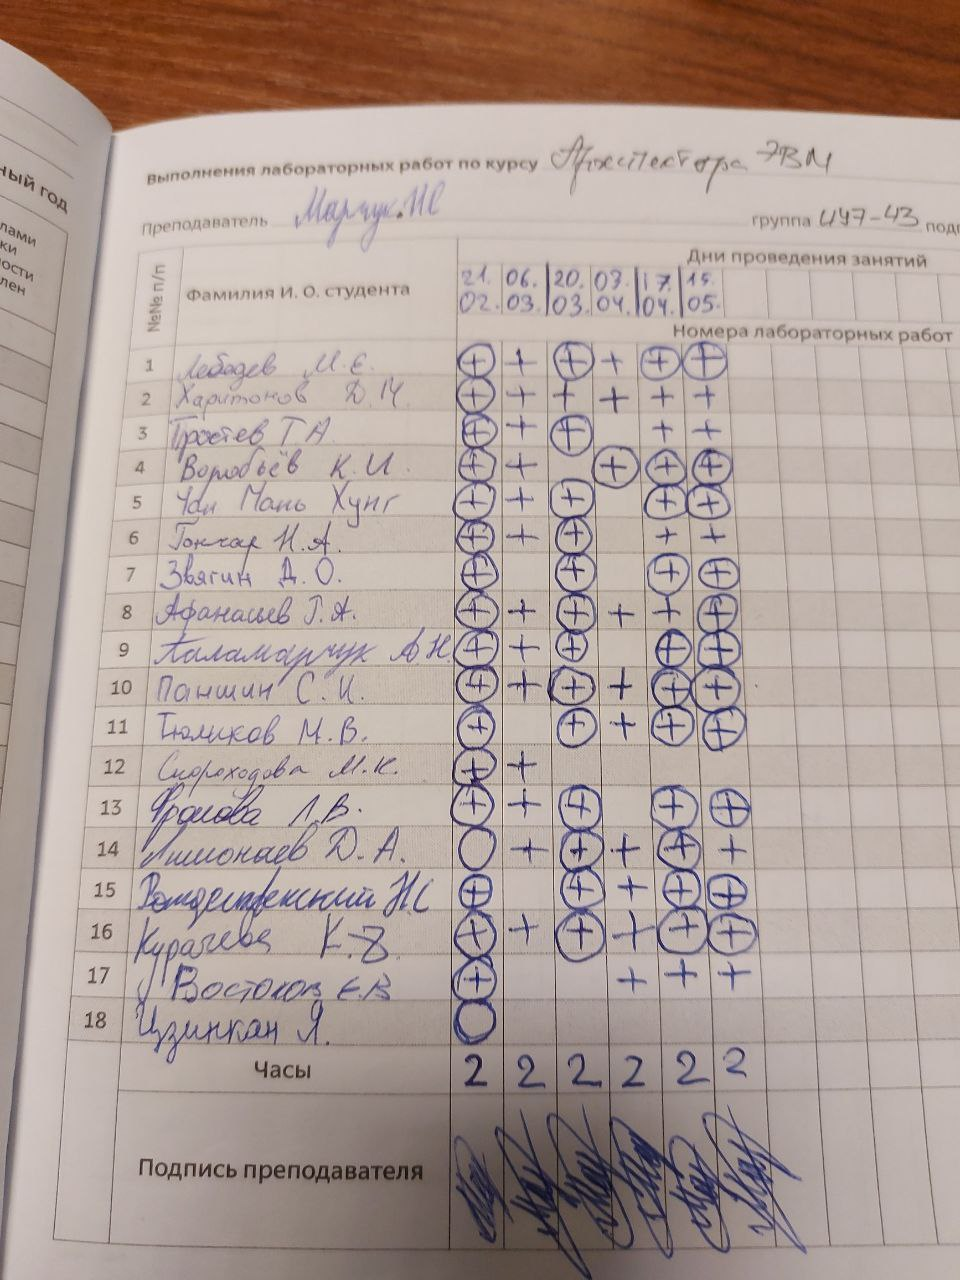 ный год
лами
ки
ости
лен
выполнения лабораторных работ по курсу Архитектора ЭВМ
Преподаватель Марчук НС группа 447-43 подг
№№ п/п Фамилия И. О. студента Дни проведения занятий
21. 06. 20. 03. 17. 15.
02. 03. 03. 04. 04. 05.
Номера лабораторных работ
1 Лебедев М. Е. ⊕ + ⊕ + ⊕ ⊕
2 Харитонов Д. М ⊕ + + + + +
3 Простев Г А ⊕ + ⊕ + +
4 Воробьёв К. И. ⊕ + ⊕ ⊕ ⊕
5 Чан Мань Хунг ⊕ + ⊕ ⊕ ⊕
6 Гончар Н. А. ⊕ + ⊕ + +
7 Звягин Д. О. ⊕ ⊕ ⊕ ⊕
8 Афанасьев Г. А. ⊕ + ⊕ + + ⊕
9 Паламарчук А Н. ⊕ + ⊕ ⊕ ⊕
10 Паншин С. И. ⊕ + ⊕ + ⊕ ⊕
11 Тюликов М. В. ⊕ ⊕ + ⊕ ⊕
12 Скороходова М. К. ⊕ +
13 Фролова Л. В. ⊕ + ⊕ ⊕ ⊕
14 Д. А. ○ + ⊕ + ⊕ +
15 Рождественский НС ⊕ ⊕ + ⊕ ⊕
16 К. ⊕ + ⊕ + ⊕ ⊕
17 Востоков Е. В ⊕ + + +
18 Цзинкан Я. ○
Часы 2 2 2 2 2 2
Подпись преподавателя